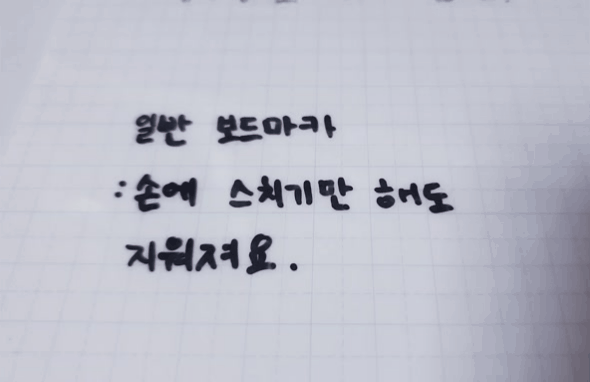 일반 보드마카
:손에 스치기만 해도
지워져요.